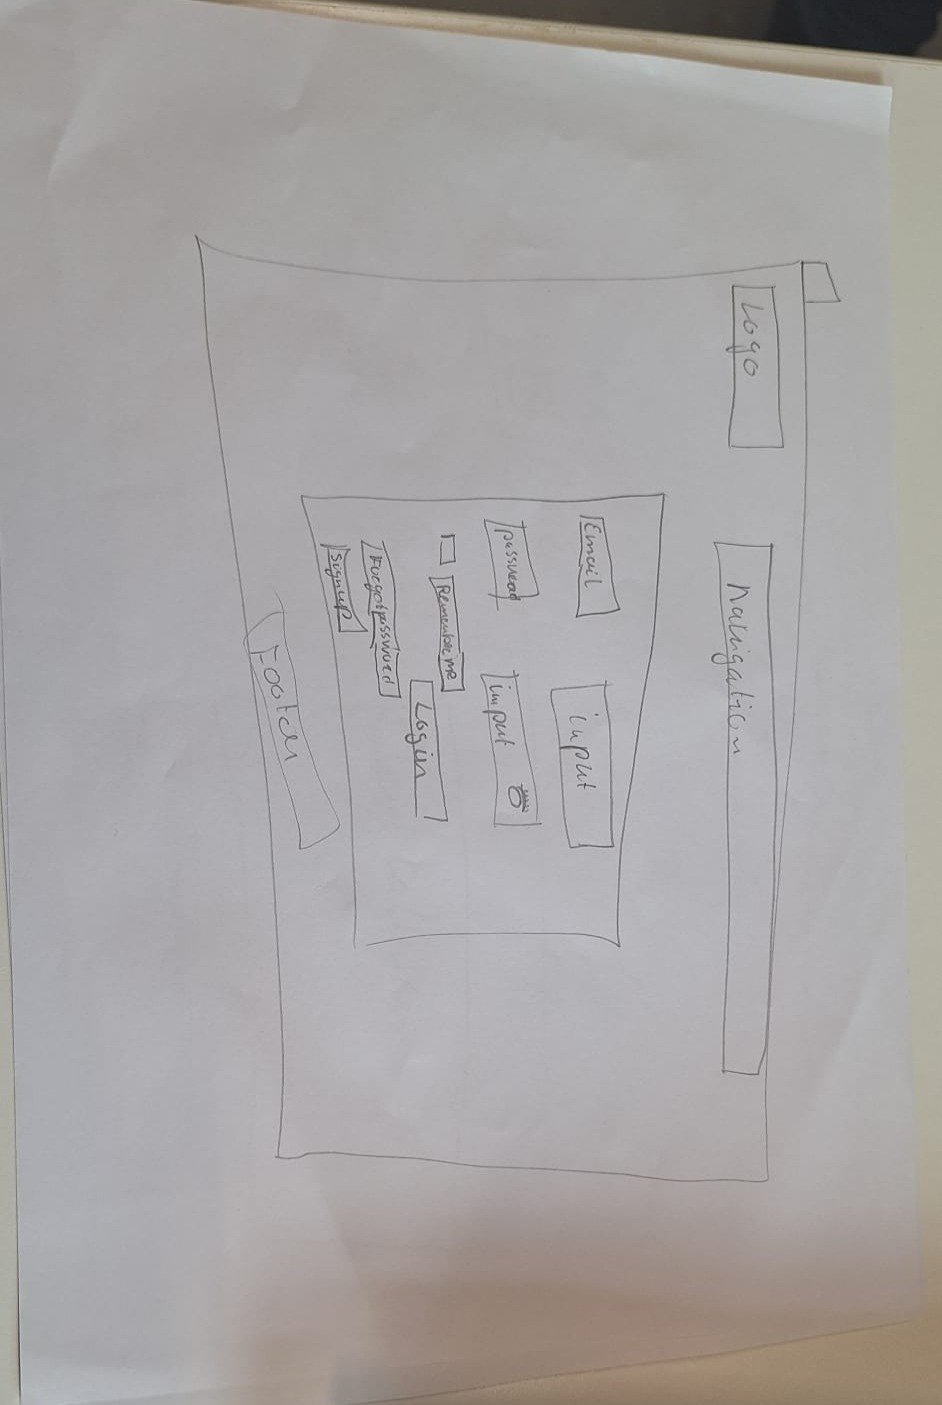 Logo
navigation
Email
input
password
input
Remember me
Login
Forgot password
Signup
Footer